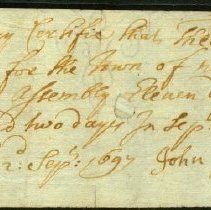 ny Certifie that The
for the Town of
Assembly Eleven
d two days In Sepr:
2d: Sepr: 1697 John